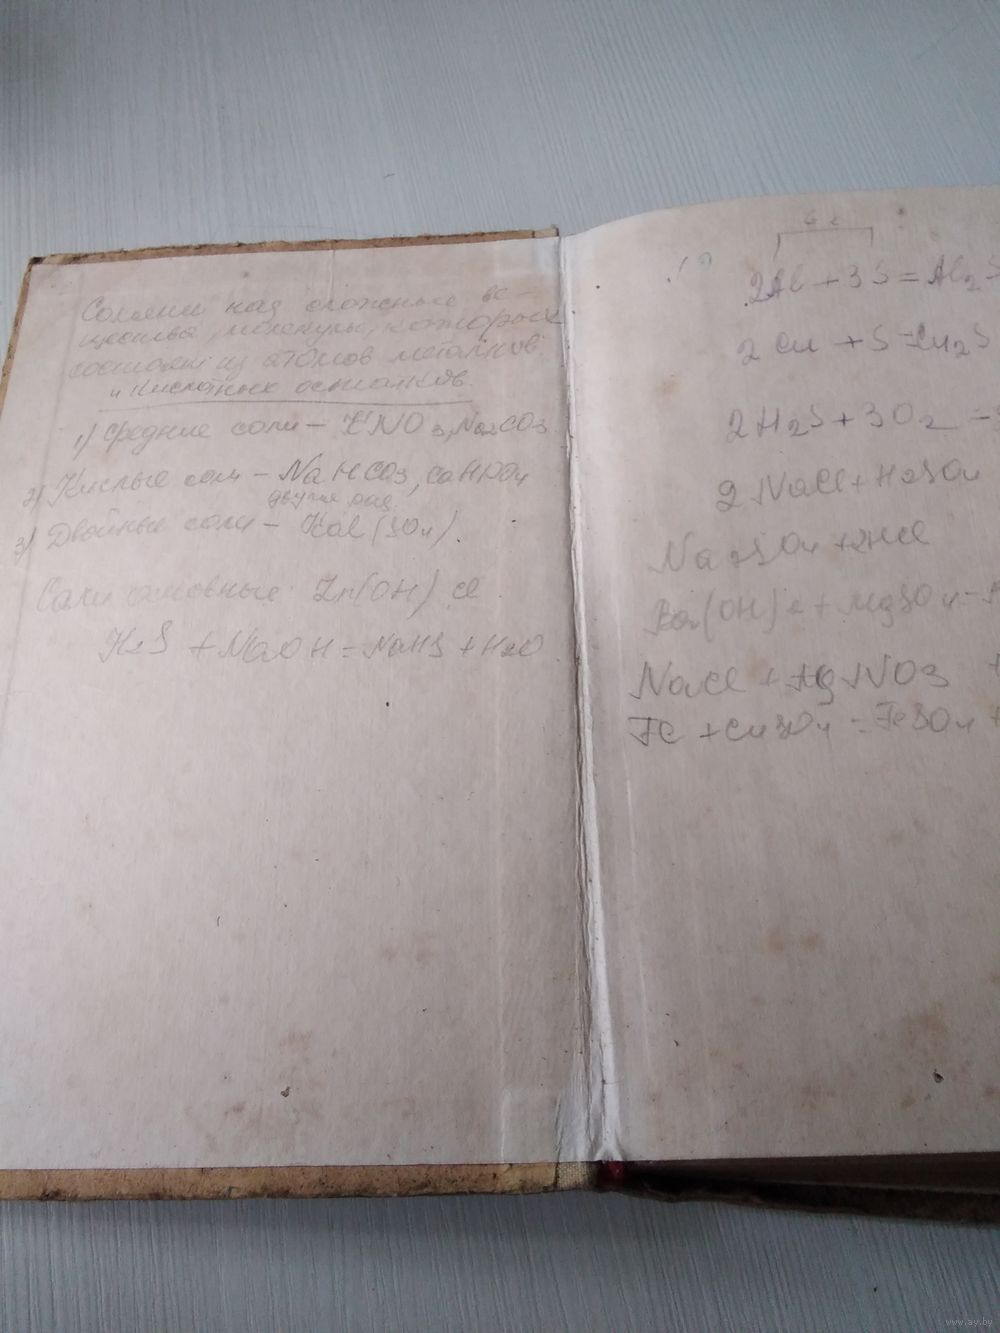 Солями наз сложные ве-
щества, молекулы, которых
состоят из атомов металлов
и кислотных остатков.
1) Средние соли – KNO3, Na2CO3
2) Кислые соли – NaHCO3, CaHPO4
3) Двойные соли – KAl(SO4).
Соли основные: Zn(OH)Cl
H2S + NaOH = NaHS + H2O
2Al + 3S = Al2S
2Cu + S = Cu2S
2H2S + 3O2 =
2NaCl + H2SO4
Na2SO4 + 2HCl
Ba(OH)2 + MgSO4 =
NaCl + AgNO3
Fe + CuSO4 = FeSO4 +
www.ay.by